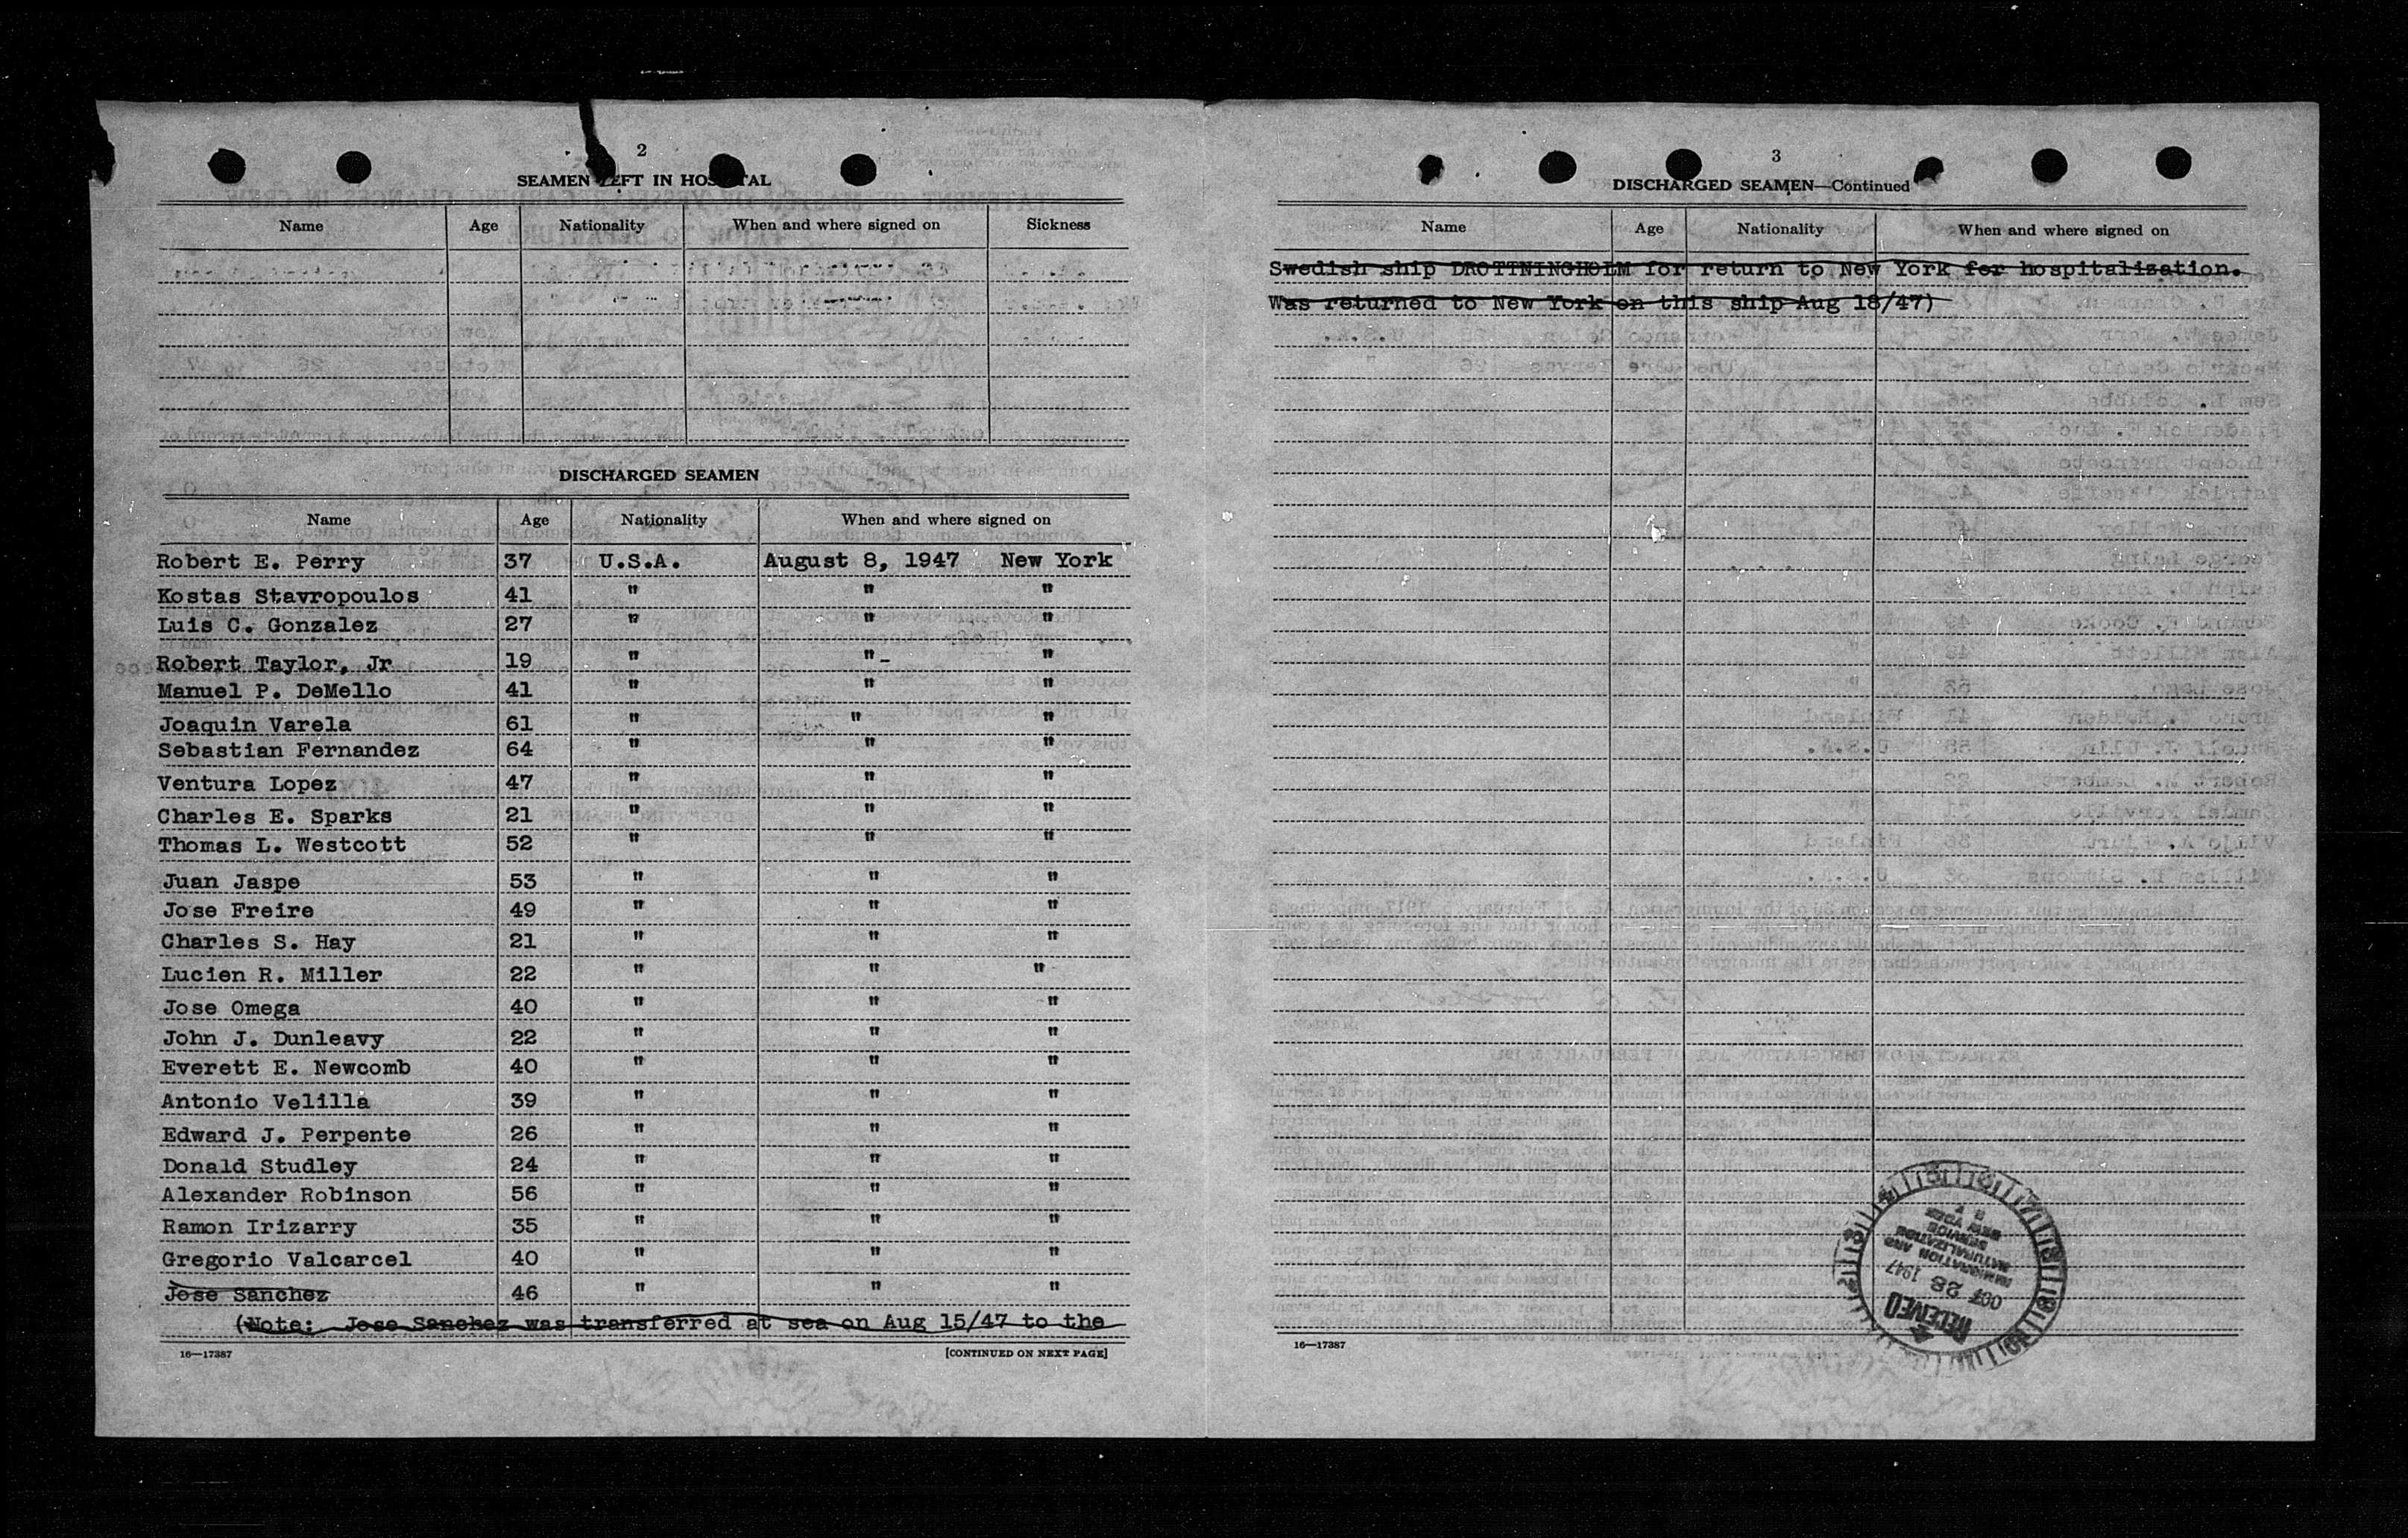 2
SEAMEN LEFT IN HOSPITAL
Name Age Nationality When and where signed on Sickness
DISCHARGED SEAMEN
Name Age Nationality When and where signed on
Robert E. Perry 37 U.S.A. August 8, 1947 New York
Kostas Stavropoulos 41 " " "
Luis C. Gonzalez 27 " " "
Robert Taylor, Jr 19 " "- "
Manuel P. DeMello 41 " " "
Joaquin Varela 61 " " "
Sebastian Fernandez 64 " " "
Ventura Lopez 47 " " "
Charles E. Sparks 21 " " "
Thomas L. Westcott 52 " " "
Juan Jaspe 53 " " "
Jose Freire 49 " " "
Charles S. Hay 21 " " "
Lucien R. Miller 22 " " "
Jose Omega 40 " " "
John J. Dunleavy 22 " " "
Everett E. Newcomb 40 " " "
Antonio Velilla 39 " " "
Edward J. Perpente 26 " " "
Donald Studley 24 " " "
Alexander Robinson 56 " " "
Ramon Irizarry 35 " " "
Gregorio Valcarcel 40 " " "
Jose Sanchez 46 " " "
(Note: Jose Sanchez was transferred at sea on Aug 15/47 to the
16—17387 [CONTINUED ON NEXT PAGE]
3
DISCHARGED SEAMEN—Continued
Name Age Nationality When and where signed on
Swedish ship DROTTNINGHOLM for return to New York for hospitalization.
Was returned to New York on this ship Aug 18/47)
RECEIVED
OCT 28 1947
IMMIGRATION AND
NATURALIZATION
SERVICE
NEW YORK
16—17387